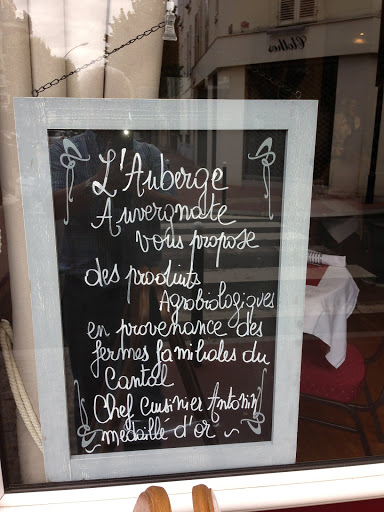 Clothes
L'Auberge
Auvergnate
vous propose
des produits
Agrobiologiques
en provenance des
fermes familiales du
Cantal
Chef cuisinier Antonin
médaille d'or